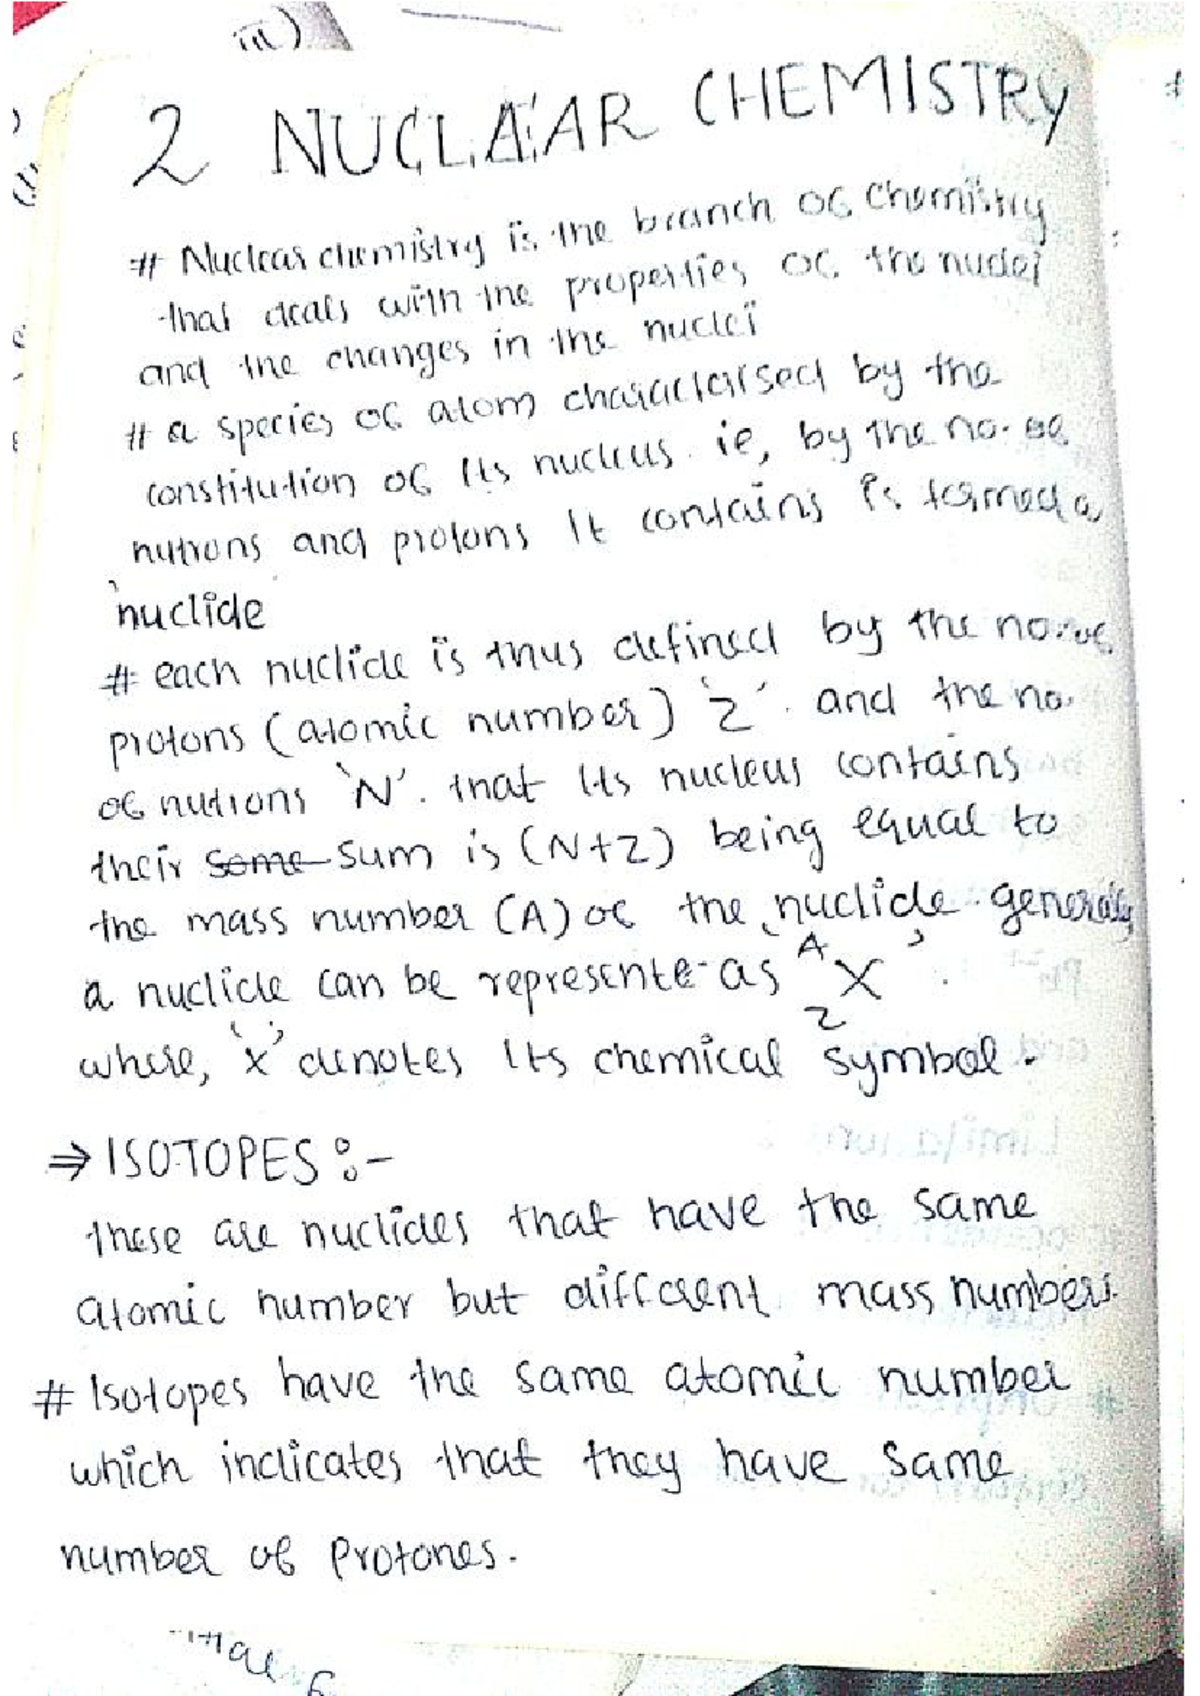 iii)
2 NUCLEAR CHEMISTRY
# Nuclear chemistry is the branch of chemistry
that deals with the properties of the nuclei
and the changes in the nuclei
# a species of atom characterised by the
constitution of its nucleus ie, by the no. of
nutrons and protons it contains is termed a
'nuclide
# each nuclide is thus defined by the no. of
protons (atomic number) 'Z'. and the no.
of nutrons 'N'. that its nucleus contains
their some sum is (N+Z) being equal to
the mass number (A) of the nuclide generally
a nuclide can be represente-as 'ᴬX'.
Z
where, 'x' denotes its chemical symbol.
⇒ ISOTOPES :-
these are nuclides that have the same
atomic number but different mass numbers.
# Isotopes have the same atomic number
which indicates that they have same
number of protones.